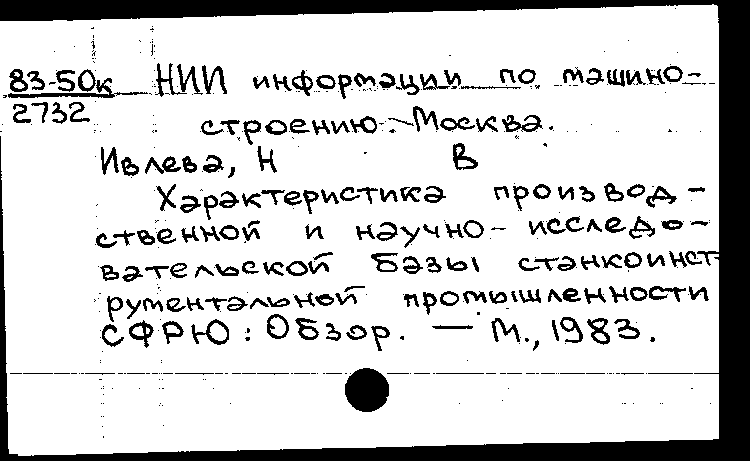 83-50к НИИ информации по машино-
2732 строению. Москва.
Ивлева, Н В
Характеристика производ-
ственной и научно-исследо-
вательской базы станкоинст
рументальной промышленности
СФРЮ: Обзор. — М., 1983.